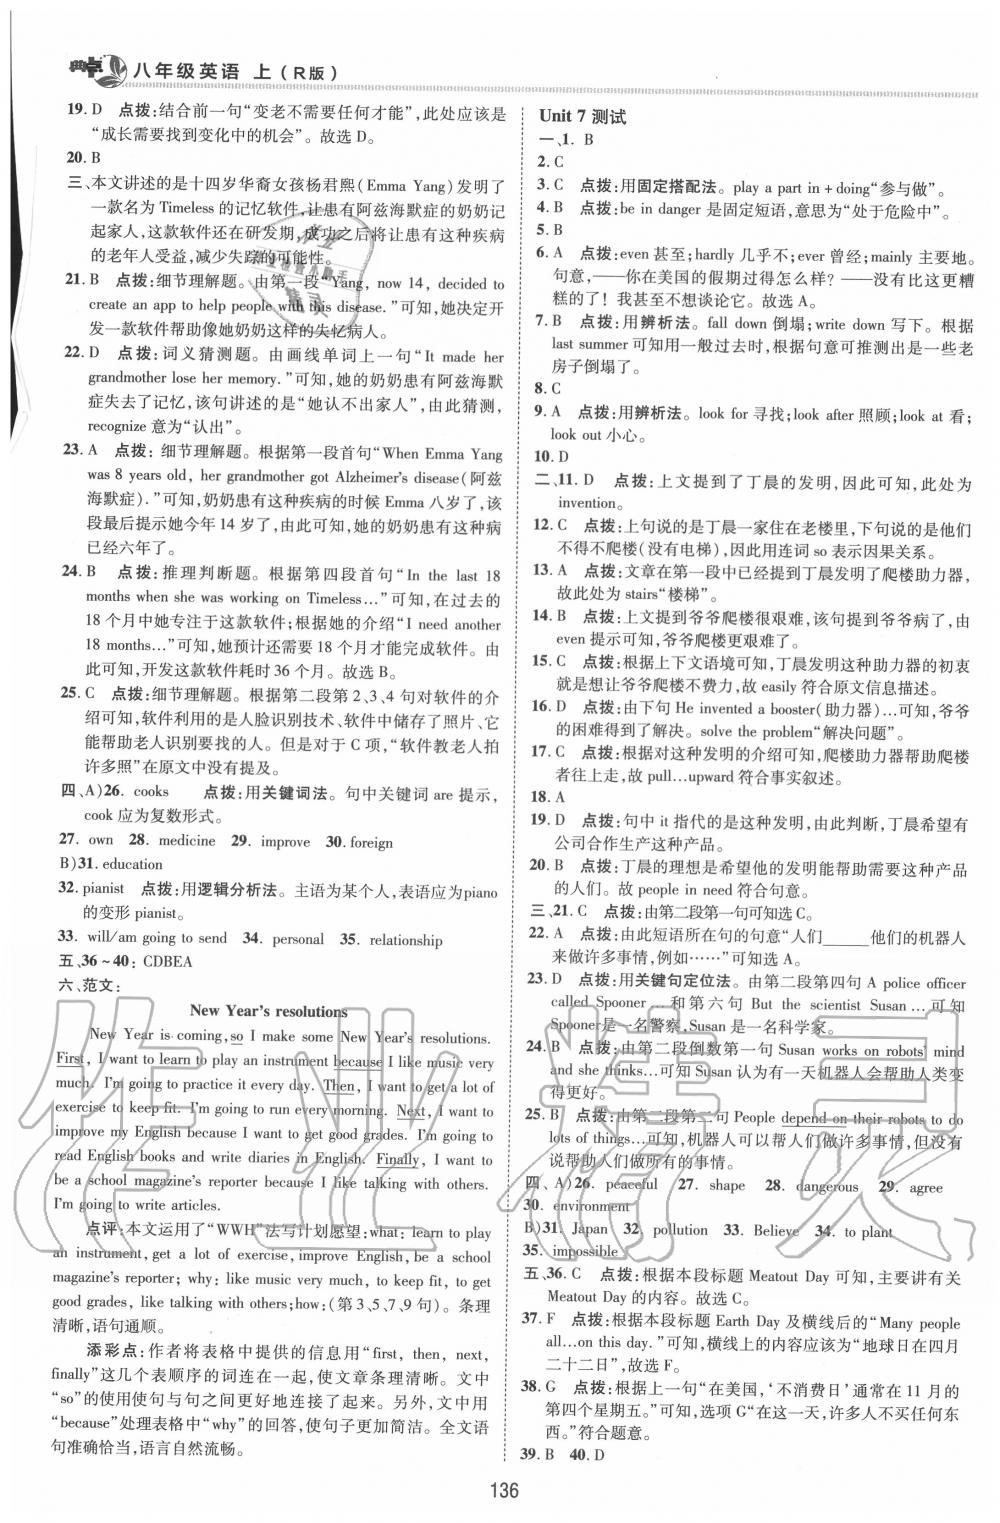 典点 八年级英语 上(R版)
19. D 点拨:结合前一句“变老不需要任何才能”,此处应该是
“成长需要找到变化中的机会”。故选 D。
20. B
三、本文讲述的是十四岁华裔女孩杨君熙(Emma Yang)发明了
一款名为 Timeless 的记忆软件,让患有阿兹海默症的奶奶记
起家人,这款软件还在研发期,成功之后将让患有这种疾病
的老年人受益,减少失踪的可能性。
21. B 点拨:细节理解题。由第一段“Yang, now 14, decided to
create an app to help people with this disease.”可知,她决定开
发一款软件帮助像她奶奶这样的失忆病人。
22. D 点拨:词义猜测题。由画线单词上一句“It made her
grandmother lose her memory.”可知,她的奶奶患有阿兹海默
症失去了记忆,该句讲述的是“她认不出家人”,由此猜测,
recognize 意为“认出”。
23. A 点拨:细节理解题。根据第一段首句“When Emma Yang
was 8 years old, her grandmother got Alzheimer's disease(阿兹
海默症).”可知,奶奶患有这种疾病的时候 Emma 八岁了,该
段最后提示她今年 14 岁了,由此可知,她的奶奶患有这种病
已经六年了。
24. B 点拨:推理判断题。根据第四段首句“In the last 18
months when she was working on Timeless...”可知,在过去的
18 个月中她专注于这款软件;根据她的介绍“I need another
18 months...”可知,她预计还需要 18 个月才能完成软件。由
此可知,开发这款软件耗时 36 个月。故选 B。
25. C 点拨:细节理解题。根据第二段第 2、3、4 句对软件的介
绍可知,软件利用的是人脸识别技术、软件中储存了照片、它
能帮助老人识别要找的人。但是对于 C 项,“软件教老人拍
许多照”在原文中没有提及。
四、A)26. cooks 点拨:用关键词法。句中关键词 are 提示,
cook 应为复数形式。
27. own 28. medicine 29. improve 30. foreign
B)31. education
32. pianist 点拨:用逻辑分析法。主语为某个人,表语应是piano
的变形 pianist。
33. will/am going to send 34. personal 35. relationship
五、36~40: CDBEA
六、范文:
New Year's resolutions
New Year is coming, so I make some New Year's resolutions.
First, I want to learn to play an instrument because I like music very
much. I'm going to practice it every day. Then, I want to get a lot of
exercise to keep fit. I'm going to run every morning. Next, I want to
improve my English because I want to get good grades. I'm going to
read English books and write diaries in English. Finally, I want to
be a school magazine's reporter because I like talking with others.
I'm going to write articles.
点评:本文运用了“WWH”法写计划愿望;what: learn to play
an instrument, get a lot of exercise, improve English, be a school
magazine's reporter; why: like music very much, to keep fit, to get
good grades, like talking with others;how:(第3、5、7、9句)。条理
清晰,语句通顺。
添彩点:作者将表格中提供的信息用“first, then, next,
finally”这几个表顺序的词连在一起,使文章条理清晰。文中
“so”的使用使句与句之间更好地连接了起来。另外,文中用
“because”处理表格中“why”的回答,使句子更加简洁。全文语
句准确恰当,语言自然流畅。
Unit 7 测试
一、1. B
2. C
3. C 点拨:用固定搭配法。play a part in + doing“参与做”。
4. B 点拨:be in danger 是固定短语,意思为“处于危险中”。
5. B
6. A 点拨:even 甚至;hardly 几乎不;ever 曾经;mainly 主要地。
句意,——你在美国的假期过得怎么样?——没有比这更糟
糕的了!我甚至不想谈论它。故选 A。
7. B 点拨:用辨析法。fall down 倒塌;write down 写下。根据
last summer 可知用一般过去时,根据句意可推测出是一些老
房子倒塌了。
8. C
9. A 点拨:用辨析法。look for 寻找;look after 照顾;look at 看;
look out 小心。
10. D
二、11. D 点拨:上文提到了丁晨的发明,因此可知,此处为
invention。
12. C 点拨:上句说的是丁晨一家住在老楼里,下句说的是他们
不得不爬楼(没有电梯),因此用连词 so 表示因果关系。
13. A 点拨:文章在第一段中已经提到丁晨发明了爬楼助力器,
故此处为 stairs“楼梯”。
14. B 点拨:上文提到爷爷爬楼很艰难,该句提到爷爷病了,由
even 提示可知,爷爷爬楼更艰难了。
15. C 点拨:根据上下文语境可知,丁晨发明这种助力器的初衷
就是想让爷爷爬楼不费力,故 easily 符合原文信息描述。
16. D 点拨:由下句 He invented a booster(助力器)...可知,爷爷
的困难得到了解决。solve the problem“解决问题”。
17. C 点拨:根据对这种发明的介绍可知,爬楼助力器帮助爬楼
者往上走,故 pull...upward 符合事实叙述。
18. A
19. D 点拨:句中 it 指代的是这种发明,由此判断,丁晨希望有
公司合作生产这种产品。
20. B 点拨:丁晨的理想是希望他的发明能帮助需要这种产品
的人们。故 people in need 符合句意。
三、21. C 点拨:由第二段第一句可知选 C。
22. A 点拨:由此短语所在句的句意“人们______他们的机器人
来做许多事情,例如……”可知选 A。
23. D 点拨:用关键句定位法。由第二段第四句 A police officer
called Spooner ... 和第六句 But the scientist Susan ... 可知
Spooner是一名警察,Susan 是一名科学家。
24. B 点拨:由第二段倒数第一句 Susan works on robots' mind
and she thinks...可知 Susan 认为有一天机器人会帮助人类变
得更好。
25. B 点拨:由第二段第二句 People depend on their robots to do
lots of things...可知,机器人可以帮人们做许多事情,但没有
说帮助人们做所有的事情。
四、A)26. peaceful 27. shape 28. dangerous 29. agree
30. environment
B)31. Japan 32. pollution 33. Believe 34. to plant
35. impossible
五、36. C 点拨:根据本段标题 Meatout Day 可知,主要讲有关
Meatout Day 的内容。故选 C。
37. F 点拨:根据本段标题 Earth Day 及横线后的“Many people
all...on this day.”可知,横线上的内容应该为“地球日在四月
二十二日”,故选 F。
38. G 点拨:根据上一句“在美国,‘不消费日’通常在 11 月的
第四个星期五。”可知,选项 G“在这一天,许多人不买任何东
西。”符合题意。
39. B 40. D
136
作业精灵